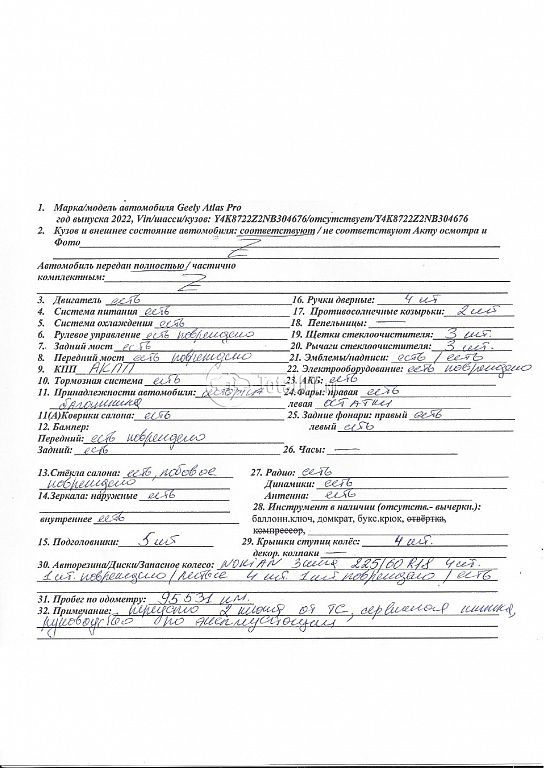 1. Марка/модель автомобиля Geely Atlas Pro
год выпуска 2022, Vin/шасси/кузов: Y4K8722Z2NB304676/отсутствует/Y4K8722Z2NB304676
2. Кузов и внешнее состояние автомобиля: соответствуют / не соответствуют Акту осмотра и
Фото
Автомобиль передан полностью / частично
комплектным:
3. Двигатель есть
4. Система питания есть
5. Система охлаждения есть
6. Рулевое управление есть повреждено
7. Задний мост есть
8. Передний мост есть повреждено
9. КПП АКПП
10. Тормозная система есть
11. Принадлежности автомобиля:
багажника
11(А)Коврики салона: есть
12. Бампер:
Передний: есть повреждено
Задний: есть
16. Ручки дверные: 4 шт
17. Противосолнечные козырьки: 2 шт
18. Пепельницы: —
19. Щетки стеклоочистителя: 3 шт.
20. Рычаги стеклоочистителя: 3 шт.
21. Эмблемы/надписи: есть / есть
22. Электрооборудование: есть повреждено
23. АКБ: есть
24. Фары: правая есть
левая остатки
25. Задние фонари: правый есть
левый есть
26. Часы: —
13. Стёкла салона: есть, лобовое
повреждено
14. Зеркала: наружные есть
внутреннее есть
15. Подголовники: 5 шт
27. Радио: есть
Динамики: есть
Антенна: есть
28. Инструмент в наличии (отсутств.- вычеркн.):
баллонн.ключ, домкрат, букс.крюк, отвёртка,
компрессор,
29. Крышки ступиц колёс: 4 шт.
декор. колпаки —
30. Авторезина/Диски/Запасное колесо: NOKIAN Зима 225/60 R18 4 шт.
1 шт. повреждено / литые 4 шт 1 шт повреждено / есть
31. Пробег по одометру: 95531 км.
32. Примечание: 2 ключа от ТС, сервисная книжка,
руководство по эксплуатации